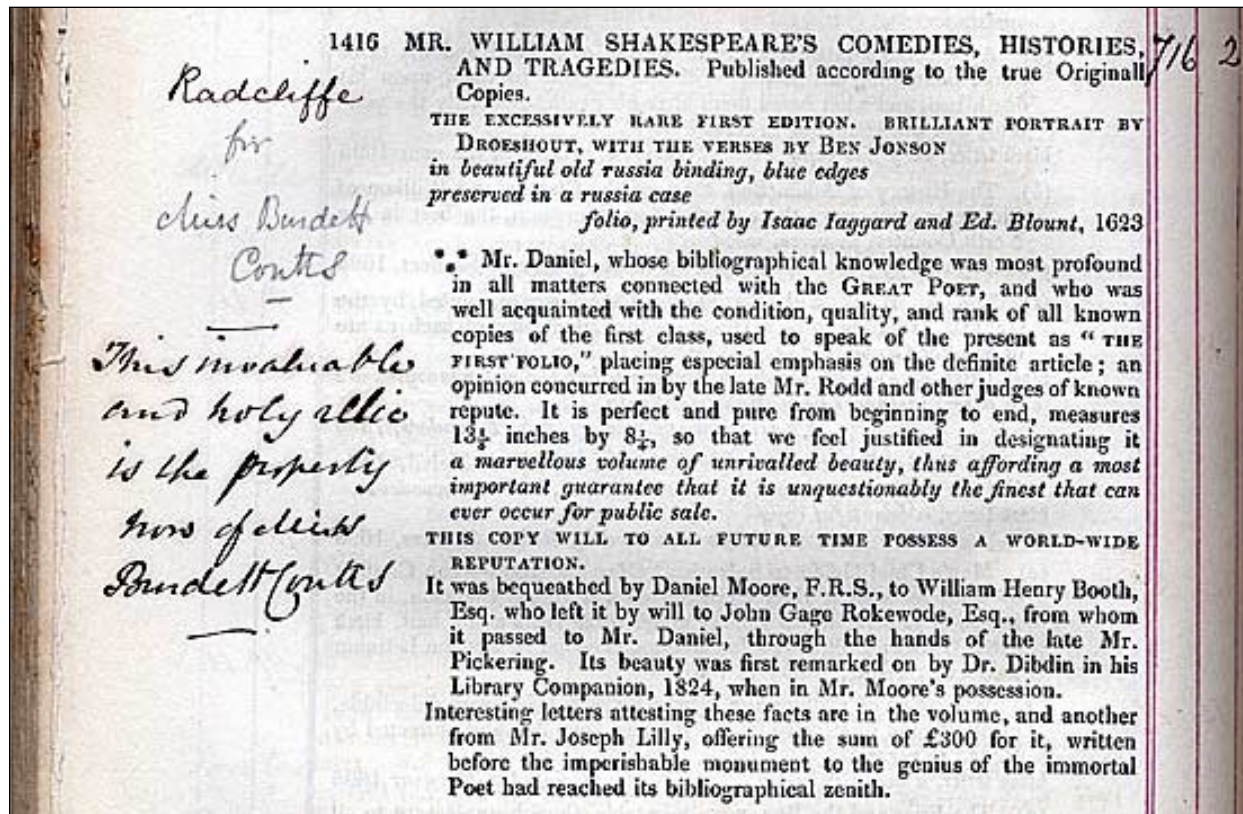 1416 MR. WILLIAM SHAKESPEARE'S COMEDIES, HISTORIES,
AND TRAGEDIES. Published according to the true Originall
Copies.
THE EXCESSIVELY RARE FIRST EDITION. BRILLIANT PORTRAIT BY
DROESHOUT, WITH THE VERSES BY BEN JONSON
in beautiful old russia binding, blue edges
preserved in a russia case
folio, printed by Isaac Iaggard and Ed. Blount, 1623
*⁎* Mr. Daniel, whose bibliographical knowledge was most profound
in all matters connected with the GREAT POET, and who was
well acquainted with the condition, quality, and rank of all known
copies of the first class, used to speak of the present as "THE
FIRST FOLIO," placing especial emphasis on the definite article; an
opinion concurred in by the late Mr. Rodd and other judges of known
repute. It is perfect and pure from beginning to end, measures
inches by so that we feel justified in designating it
a marvellous volume of unrivalled beauty, thus affording a most
important guarantee that it is unquestionably the finest that can
ever occur for public sale.
THIS COPY WILL TO ALL FUTURE TIME POSSESS A WORLD-WIDE
REPUTATION.
It was bequeathed by Daniel Moore, F.R.S., to William Henry Booth,
Esq. who left it by will to John Gage Rokewode, Esq., from whom
it passed to Mr. Daniel, through the hands of the late Mr.
Pickering. Its beauty was first remarked on by Dr. Dibdin in his
Library Companion, 1824, when in Mr. Moore's possession.
Interesting letters attesting these facts are in the volume, and another
from Mr. Joseph Lilly, offering the sum of £300 for it, written
before the imperishable monument to the genius of the immortal
Poet had reached its bibliographical zenith.
716 2
Radcliffe
for
Miss Burdett
Coutts
This invaluable
and holy relic
is the property
now of Miss
Burdett Coutts